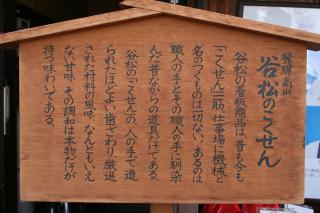 飛騨高山
谷松のこくせん
谷松の看板商品は、昔も今も
「こくせん」一筋。仕事場に機械と
名のつくものは一切ない。あるのは
職人の手とその職人の手に馴染
んだ昔ながらの道具だけである。
谷松の「こくせん」の、人の手で造
られたほどよい歯ざわり、厳選
された材料の風味、なんともいえ
ない甘味、その調和は本物だけが
持つ味わいである。